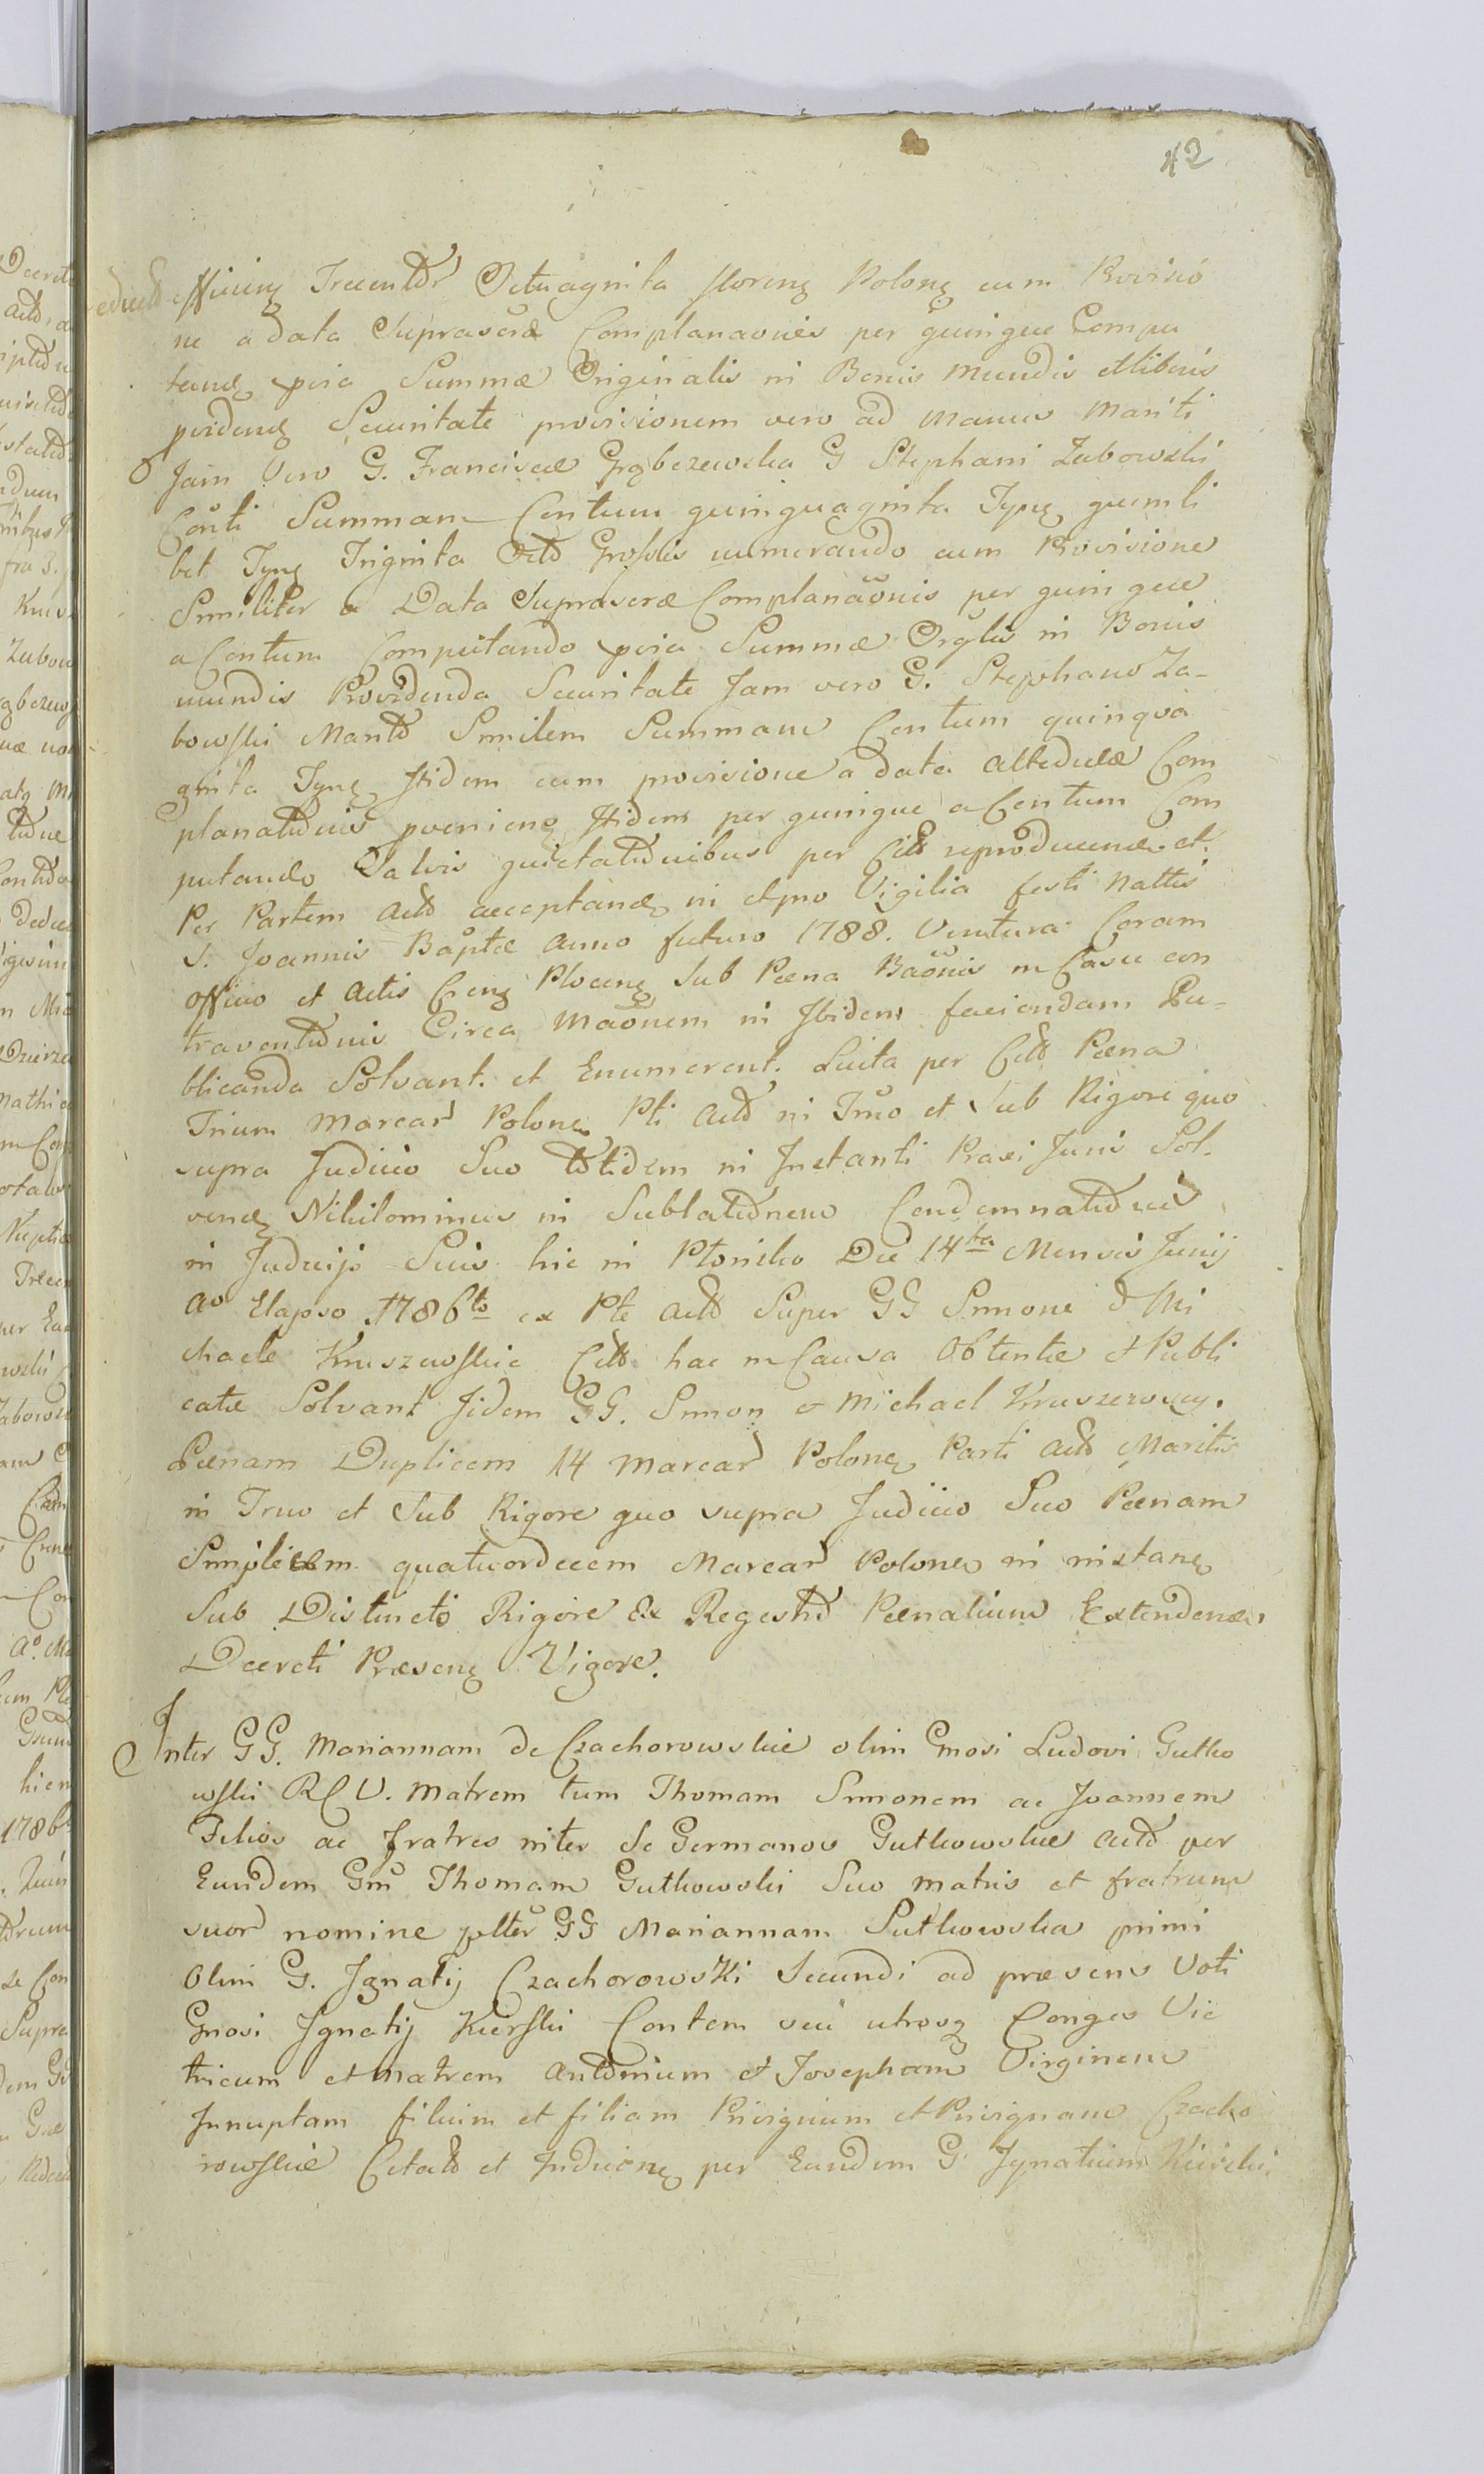 42
efficien Trecentor Octuaginta floren Polon cum Provisio
ne a data Suprascræ Complanaonis per quinque Compu
tand pria Summæ Originalis in Bonis mundis et liberis
pvidend Securitate provisionem vero ad manus Mariti
Jam Vero G. Franciscæ Grąbczewska G Stephani Zabowski
Conti Summam Centum quinquaginta Tynf quemli
bet Tynf Triginta Octo Grossis numerando cum Provisione
Similiter a Data Suprascræ Complanaonis per quinque
a Centum Computando pria Summæ Orglis in Bonis
mundis Providenda Securitate Jam vero G. Stephano Za-
bowski Marito Similem Summam Centum quinqua
ginta Tynf itidem cum provisione a data alteductæ Com
planationis pvenien itidem per quinque a Centum Com
putando Salvis quietationibus per Citt reproducend et
Per Partem Act acceptand in et pro Vigilia festi Nattis
S. Joannis Baptæ anno futuro 1788. Ventura Coram
Officio et Actis Cren Plocen Sub Pæna Baonis in Casu con
traventionis Circa Maonem in Ibidem faciendam Pu-
blicanda Solvant. et Enumerent. Luita per Citt Pæna
Trium Marcar Polon Pti Act in Trno et Sub Rigore quo
supra Judicio Suo totidem in Instanti Praxi Juris Sol-
vend Nihilominus in Sublationem Condemnationis
in Judicijs Suis hic in Płonsko Die 14ta Mensis Junij
Ao Elapso 1786to ex Pte Act Super GG Simone & Mi
chaele Kruszewskie Citt hac in Causa Obtentæ et Publi
catæ Solvant Iidem GG. Simon & Michael Kruszewscy.
Pænam Duplicem 14 Marcar Polon Parti Act Maritis
in Trno et Sub Rigore quo supra Judicio Suo Pænam
Simplicem quatuordecem Marcar Polon in instan
Sub Distincto Rigore Ex Regestro Pænalium Extendend
Decreti Præsen Vigore.
Inter GG. Mariannam de Czachorowskie olim Gnosi Ludovi Gutko
wski RCV. Matrem tum Thomam Simonem ac Joannem
Filios ac fratres inter Se Germanos Gutkowskie Act per
Eundem Gm Thomam Gutkowski Suo matris et fratrum
suor nomine pltter GG Mariannam Sutkowska primi
Olim G. Ignatij Czachorowski Secundi ad præsens Voti
Gnosi Ignatij Kierski Contem seu utrosq Conges Vic
tricum et Matrem Antonium et Josepham Virginem
Innuptam filium et filiam Privignum et Privignam Czacho
rowskie Citato et Inducen per Eundem G Ignatium Kierski.